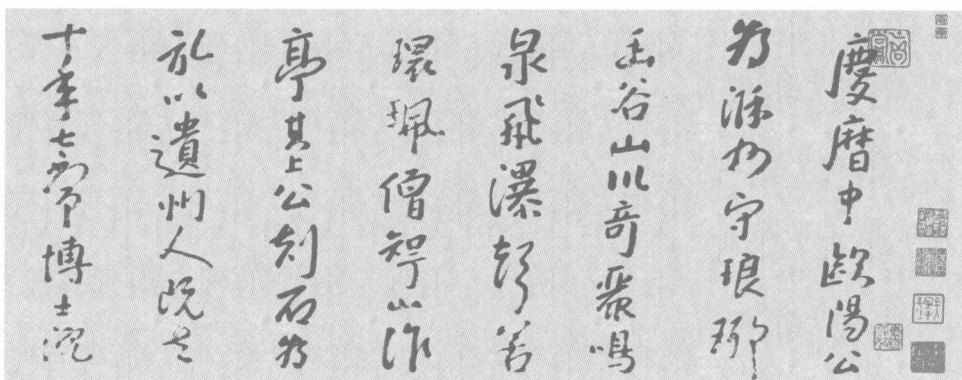 慶曆中歐陽公
為滁州守琅琊
幽谷山川奇麗鳴
泉飛瀑聲若
環珮僧智仙作
亭其上公刻石為
記以遺州人既去
十年太常博士沈